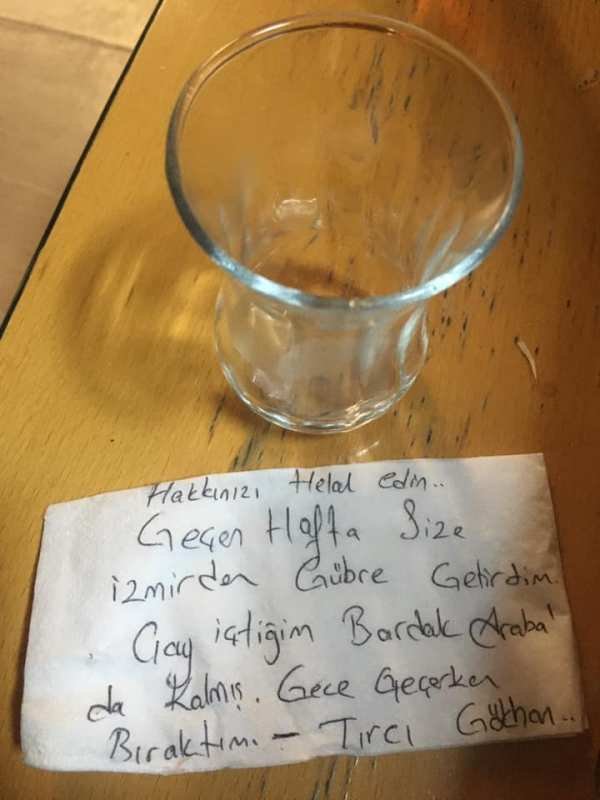 Hakkınızı Helal edin..
Geçen Hafta Size
izmirden Gübre Getirdim.
Çay içtiğim Bardak Araba'
da Kalmış. Gece Geçerken
Bıraktım. - Tırcı Gökhan..